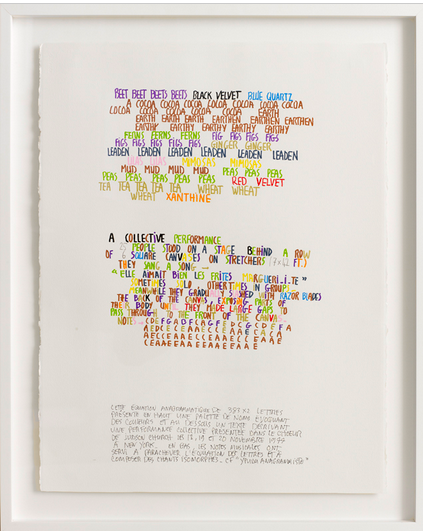 BEET BEET BEETS BEETS BLACK VELVET BLUE QUARTZ
A COCOA COCOA COCOA COCOA COCOA COCOA COCOA
COCOA COCOA COCOA COCOA COCOA EARTH
EARTH EARTH EARTH EARTHEN EARTHEN EARTHEN
EARTHY EARTHY EARTHY EARTHY EARTHY
FERNS FERNS FERNS FERNS FIG FIGS FIGS
FIGS FIGS FIGS FIGS FIGS GINGER GINGER
LEADEN LEADEN LEADEN LEADEN LEADEN LEADEN
MIMOSAS MIMOSAS
MUD MUD MUD MUD PEAS PEAS PEAS
PEAS PEAS PEAS PEAS PEAS RED VELVET
TEA TEA TEA TEA TEA WHEAT WHEAT
WHEAT XANTHINE
A COLLECTIVE PERFORMANCE
PEOPLE STOOD ON A STAGE BEHIND A ROW
OF 6 SQUARE CANVASES ON STRETCHERS
THEY SANG A SONG
"ELLE AIMAIT BIEN LES FRITES MARGUERI..I.TE"
SOMETIMES SOLO OTHERTIMES IN GROUPS
MEANWHILE THEY GRADUALLY SLASHED WITH RAZOR BLADES
THE BACK OF THE CANVAS, EXPOSING PARTS OF
THEIR BODY UNTIL THEY MADE LARGE GAPS TO
PASS THROUGH TO THE FRONT OF THE CANVAS
NOTES
CETTE EQUATION ANAGRAMMATIQUE DE LETTRES
PRESENTE EN HAUT UNE PALETTE DE NOMS EVOQUANT
DES COULEURS ET AU DESSOUS UN TEXTE DECRIVANT
UNE PERFORMANCE COLLECTIVE PRESENTEE DANS LE
DE JUDSON CHURCH LES 18, 19 ET 20 NOVEMBRE
A NEW YORK. EN BAS, LES NOTES MUSICALES ONT
SERVI A PARACHEVER L'EQUATION DES LETTRES ET A
COMPOSER DES CHANTS ISOMORPHES. CF